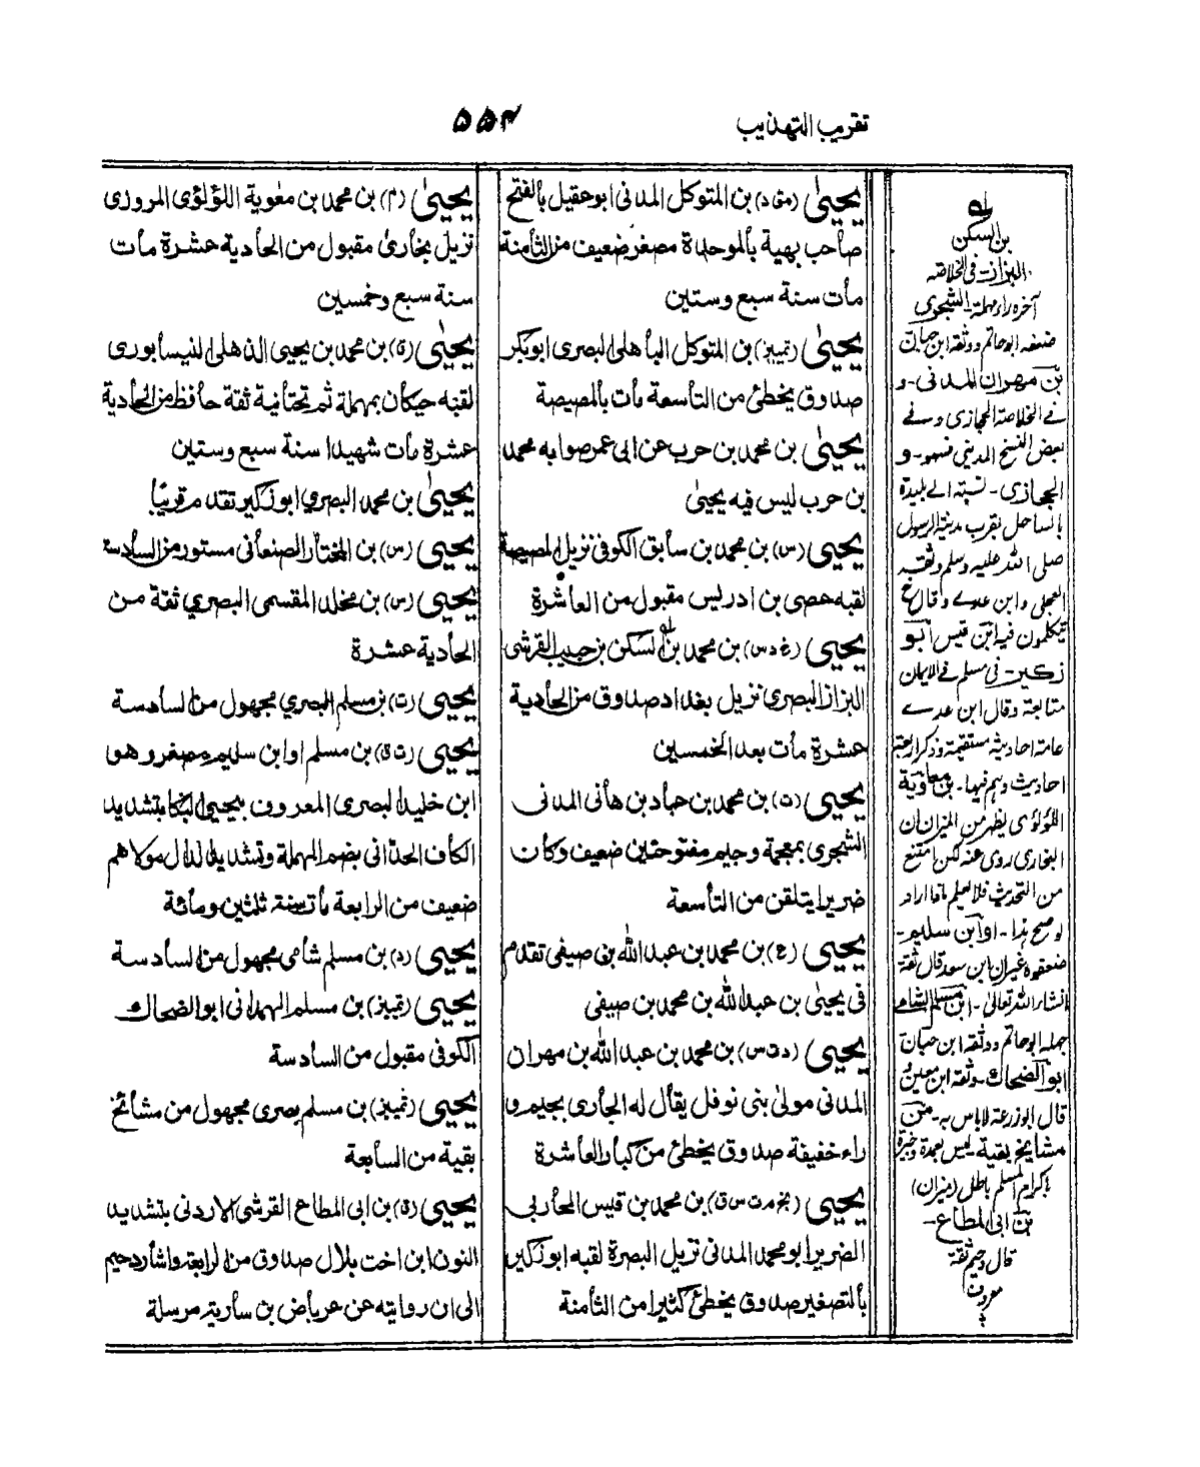 تقريب التهذيب
۵۵۴
يحيىٰ (مق د) بن المتوكل المدنى ابو عقيل بالفتح
صاحب بهية بالموحدة مصغر ضعيف من الثامنة
مات سنة سبع وستين
يحيىٰ (تمييز) بن المتوكل الباهلى البصرى ابوبكر
صدوق يخطئ من التاسعة مات بالمصيصة
يحيىٰ بن محمد بن حرب عن ابى عمر صوابه محمد
بن حرب ليس فيه يحيىٰ
يحيىٰ (س) بن محمد بن سابق الكوفى نزيل المصيصة
لقبه عصى بن ادريس مقبول من العاشرة
يحيىٰ (خ د س) بن محمد بن السكن بن حبيب القرشى
البزاز البصري نزيل بغداد صدوق من الحادية
عشرة مات بعد الخمسين
يحيىٰ (ت) بن محمد بن عباد بن هانى المدنى
الشجرى بمعجمة وجيم مفتوحتين ضعيف وكان
ضريرا يتلقن من التاسعة
يحيىٰ (ع) بن محمد بن عبد الله بن صيفى تقدم
فى يحيىٰ بن عبد الله بن محمد بن صيفى
يحيىٰ (د ت س) بن محمد بن عبد الله بن مهران
المدنى مولىٰ بنى نوفل يقال له الجارى بجيم و
راء خفيفة صدوق يخطئ من كبار العاشرة
يحيىٰ (بخ م ت س ق) بن محمد بن قيس المحاربى
الضرير ابو محمد المدنى نزيل البصرة لقبه ابو زكير
بالتصغير صدوق يخطئ كثيرا من الثامنة
يحيىٰ (م) بن محمد بن معٰوية اللؤلؤى المروزى
نزيل بخارىٰ مقبول من الحادية عشرة مات
سنة سبع وخمسين
يحيىٰ (ق) بن محمد بن يحيىٰ الذهلى النيسابورى
لقبه حيكان بمهملة ثم تحتانية ثقة حافظ من الحادية
عشرة مات شهيدا سنة سبع وستين
يحيىٰ بن محمد البصري ابو زكير تقدم قريبًا
يحيىٰ (س) بن المختار الصنعانى مستور من السادسة
يحيىٰ (س) بن مخلد المقسمى البصري ثقة من
الحادية عشرة
يحيىٰ (ت) بن مسلم البصري مجهول من السادسة
يحيىٰ (ت ق) بن مسلم او ابن سليم مصغر وهو
ابن خليد البصرى المعروف بيحيىٰ البكا بتشديد
الكاف الحدانى بضم المهملة وتشديد الدال مولاهم
ضعيف من الرابعة مات سنة ثلثين ومائة
يحيىٰ (د) بن مسلم شامى مجهول من السادسة
يحيىٰ (تمييز) بن مسلم الهمدانى ابو الضحاك
الكوفى مقبول من السادسة
يحيىٰ (تمييز) بن مسلم بصرى مجهول من مشائخ
بقية من السابعة
يحيىٰ (ق) بن ابى المطاع القرشى الاردنى بتشديد
النون ابن اخت بلال صدوق من الرابعة واشار دحيم
الى ان روايته عن عرباض بن سارية مرسلة
بن السكن
البزاز فى الخلاصة
آخره راء مهملة الشجرى
ضعفه ابو حاتم ووثقه ابن حبان
بن مهران المدنى- و
فى الخلاصة الحجازى وفى
بعض النسخ المدينى فهو- و
الحجازى- نسبته الى بليدة
بالساحل بقرب مدينة الرسول
صلى الله عليه وسلم وثقه
العجلى وابن عدى وقال خ
يتكلمون فيه ابن قيس ابو
زكير فى مسلم فى الايمان
متابعة وقال ابن عدى
عامة احاديثه مستقيمة وذكر اربعة
احاديث وهم فيها- بن معاوية
اللؤلؤى يظهر من الميزان ان
البخارى روى عنه لكن امتنع
من التحديث فلا يعلم ماذا اراد
لو صح هذا- او ابن سليم-
ضعفوه غير ان ابن سعد قال ثقة
انشاء الله تعالى- ابن مسلم الشامى
جهله ابو حاتم ووثقه ابن حبان
ابو الضحاك- وثقه ابن معين و
قال ابو زرعة لا باس به- من
مشايخ بقية- ليس بعمدة وخبره
باكرام المسلم باطل (ميزان)
بن ابى المطاع-
قال دحيم ثقة
معروف